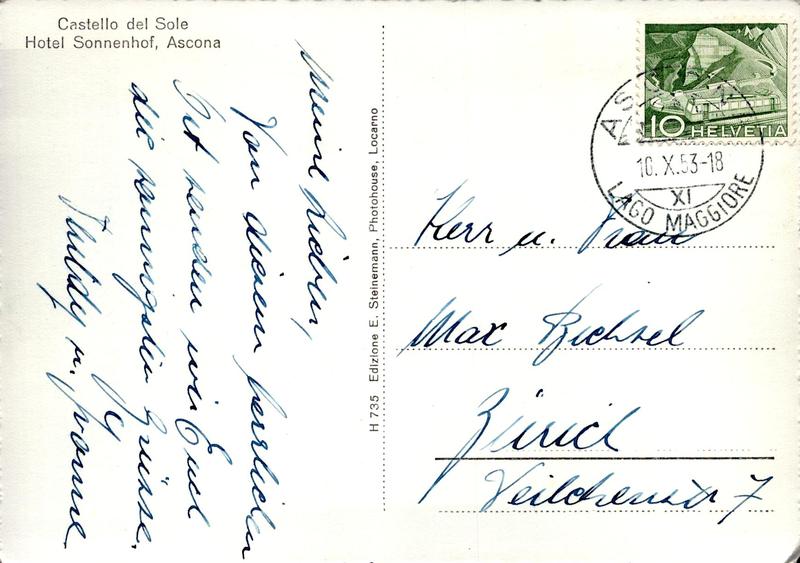 Castello del Sole
Hotel Sonnenhof, Ascona
Meine Lieben,
Von diesem herrlichen
Ort senden wir Euch
die sonnigsten Grüsse.
u. Yvonne
H 735 Edizione E. Steinemann, Photohouse, Locarno
10 HELVETIA
ASCONA
10. X. 53-18
XI
LAGO MAGGIORE
Herr u. Frau
Max Bichsel
Zürich
Veilchenstr 7